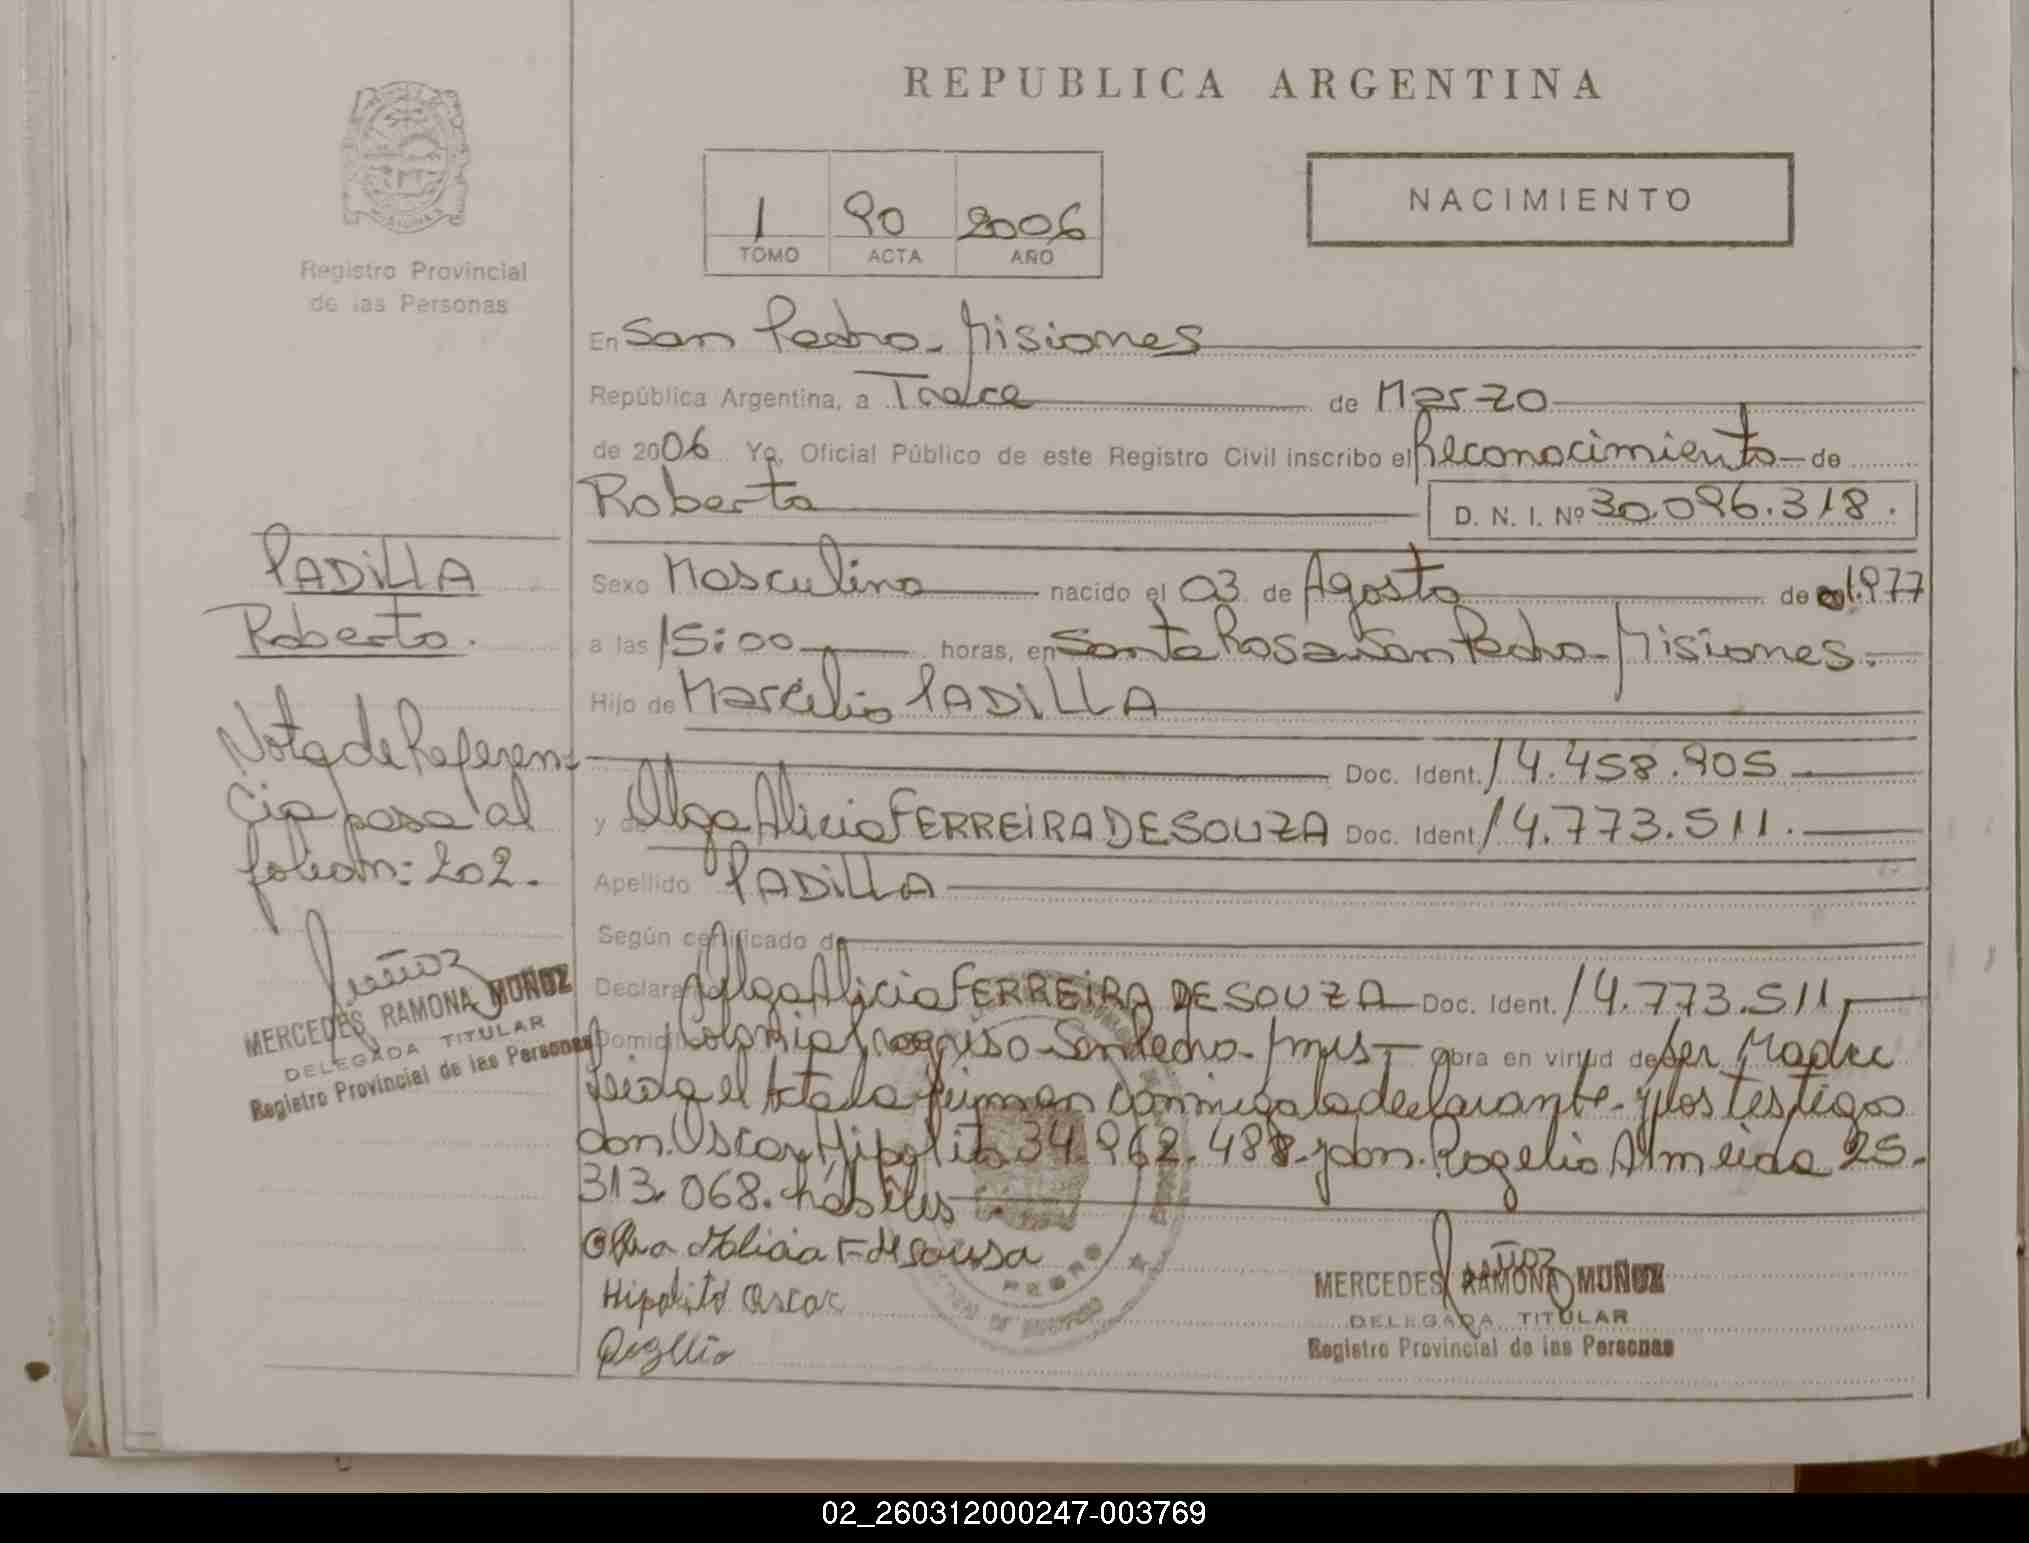 REPUBLICA ARGENTINA
1 90 2006
TOMO ACTA AÑO
NACIMIENTO
Registro Provincial
de las Personas
En San Pedro - Misiones
República Argentina, a Trece de Marzo
de 2006 Yo, Oficial Público de este Registro Civil inscribo el Reconocimiento de
Roberto D. N. I. Nº 30.096.318.
PADiLLA
Roberto.
Sexo Masculino nacido el 03 de Agosto de 1.977
a las 15:00 horas, en Santa Rosa San Pedro - Misiones.
Hijo de Marcelio PADiLLA
Doc. Ident. 14.458.905
y de Olga Alicia FERREiRA DE SOUZA Doc. Ident. 14.773.511.
Apellido PADiLLA
Nota de Referen
cia pasa al
folio n: 202.
Muñoz
MERCEDES RAMONA MUÑOZ
DELEGADA TITULAR
Registro Provincial de las Personas
Según certificado de
Declara Olga Alicia FERREiRA DE SOUZA Doc. Ident. 14.773.511
Domicilio Colonia Progreso San Pedro - Mnes obra en virtud de Ser Madre
leida el Acta la firman conmigo la declarante y los testigos
don. Oscar Hipolito 34.962.488 y don. Rogelio Almeida 25.
313.068. hábiles
Olga Alicia F de sousa
Hipolito Oscar
Rogelio
Muñoz
MERCEDES RAMONA MUÑOZ
DELEGADA TITULAR
Registro Provincial de las Personas
02_260312000247-003769